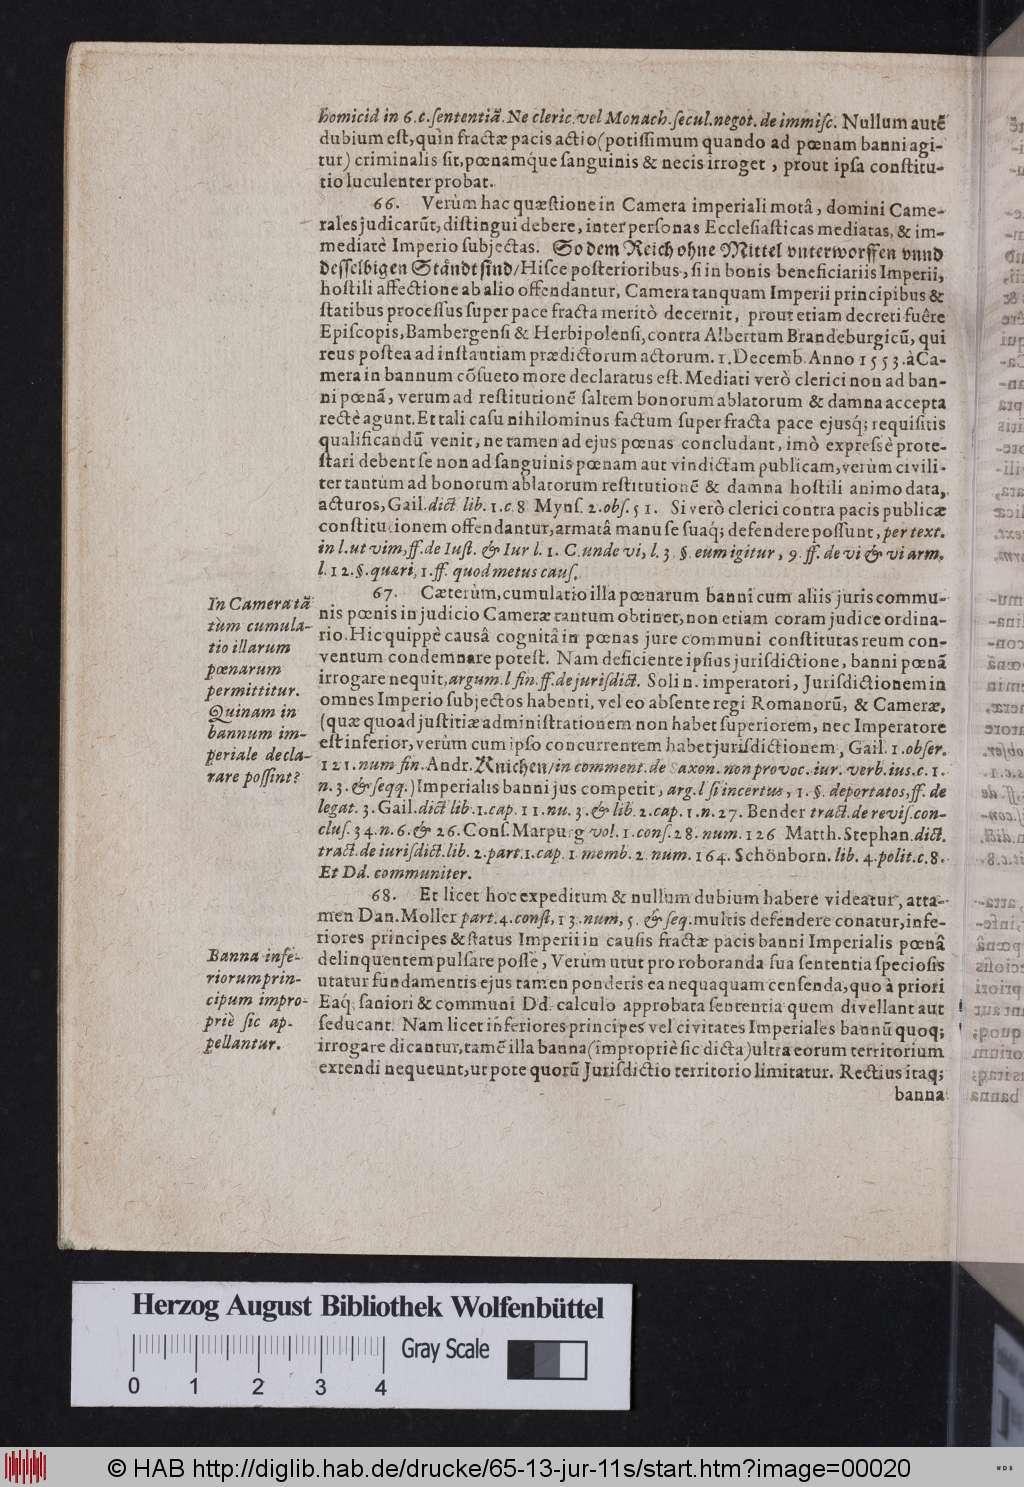 homicid in 6.c.ſententiã. Ne cleric. vel Monach. ſecul. negot. de immiſc. Nullum autẽ
dubium eſt, quin fractæ pacis actio (potiſſimum quando ad pœnam banni agi-
tur) criminalis ſit, pœnamque ſanguinis & necis irroget, prout ipſa conſtitu-
tio luculenter probat.
66. Verùm hac quæſtione in Camera imperiali motâ, domini Came-
rales judicarũt, diſtingui debere, inter perſonas Eccleſiaſticas mediatas, & im-
mediatè Imperio ſubjectas. So dem Reich ohne Mittel vnterworffen vnnd
deſſelbigen Ständt ſind/ Hiſce poſterioribus, ſi in bonis beneficiariis Imperii,
hoſtili affectione ab alio offendantur, Camera tanquam Imperii principibus &
ſtatibus proceſſus ſuper pace fracta meritò decernit, prout etiam decreti fuêre
Epiſcopis, Bambergenſi & Herbipolenſi, contra Albertum Brandeburgicũ, qui
reus poſtea ad inſtantiam prædictorum actorum. 1. Decemb. Anno 1553. à Ca-
mera in bannum cõſueto more declaratus eſt. Mediati verò clerici non ad ban-
ni pœnã, verum ad reſtitutionẽ ſaltem bonorum ablatorum & damna accepta
rectè agunt. Et tali caſu nihilominus factum ſuper fracta pace ejusq́; requiſitis
qualificandũ venit, ne tamen ad ejus pœnas concludant, imò expreſsè prote-
ſtari debent ſe non ad ſanguinis pœnam aut vindictam publicam, verùm civili-
ter tantùm ad bonorum ablatorum reſtitutionẽ & damna hoſtili animo data,
acturos, Gail. dict lib. 1. c. 8 Mynſ. 2. obſ. 51. Si verò clerici contra pacis publicæ
conſtitutionem offendantur, armatâ manu ſe ſuaq́; defendere poſſunt, per text.
in l. ut vim, ff. de Iuſt. & Iur l. 1. C. unde vi, l. 3. §. eum igitur, 9. ff. de vi & vi arm.
l. 12. §. quæri, 1. ff. quod metus cauſ.
67. Cæterùm, cumulatio illa pœnarum banni cum aliis juris commu-
nis pœnis in judicio Cameræ tantum obtinet, non etiam coram judice ordina-
rio. Hic quippè causâ cognitâ in pœnas jure communi conſtitutas reum con-
ventum condemnare poteſt. Nam deficiente ipſius juriſdictione, banni pœnã
irrogare nequit, argum. l fin. ff. de juriſdict. Soli n. imperatori, Juriſdictionem in
omnes Imperio ſubjectos habenti, vel eo abſente regi Romanorũ, & Cameræ,
(quæ quoad juſtitiæ adminiſtrationem non habet ſuperiorem, nec Imperatore
eſt inferior, verùm cum ipſo concurrentem habet juriſdictionem, Gail. 1. obſer.
121. num fin. Andr. Knichen/ in comment. de Saxon. non provoc. iur. verb. ius. c. 1.
n. 3. & ſeqq.) Imperialis banni jus competit, arg. l ſi incertus, 1. §. deportatos, ff. de
legat. 3. Gail. dict lib. 1. cap. 11. nu. 3. & lib. 2. cap. 1. n. 27. Bender tract. de reviſ. con-
cluſ. 34. n. 6. & 26. Conſ. Marpurg vol. 1. conſ. 28. num. 126 Matth. Stephan. dict.
tract. de iuriſdict. lib. 2. part. 1. cap. 1 memb. 2 num. 164. Schönborn. lib. 4. polit. c. 8.
Et Dd. communiter.
68. Et licet hoc expeditum & nullum dubium habere videatur, atta-
men Dan. Moller part. 4. conſt, 13. num, 5. & ſeq. multis defendere conatur, infe-
riores principes & ſtatus Imperii in cauſis fractæ pacis banni Imperialis pœnâ
delinquentem pulſare poſſe, Verùm utut pro roboranda ſua ſententia ſpecioſis
utatur fundamentis ejus tamen ponderis ea nequaquam cenſenda, quo à priori
Eaq́; ſaniori & communi Dd. calculo approbata ſententia quem divellant aut
ſeducant. Nam licet inferiores principes vel civitates Imperiales bannũ quoq́;
irrogare dicantur, tamẽ illa banna (impropriè ſic dicta) ultra eorum territorium
extendi nequeunt, ut pote quorũ Juriſdictio territorio limitatur. Rectius itaq́;
banna
In Camera tã
tùm cumula-
tio illarum
pœnarum
permittitur.
Quinam in
bannum im-
periale decla-
rare poſſint?
Banna infe-
riorum prin-
cipum impro-
priè ſic ap-
pellantur.
Herzog August Bibliothek Wolfenbüttel
Gray Scale
0 1 2 3 4
© HAB http://diglib.hab.de/drucke/65-13-jur-11s/start.htm?image=00020